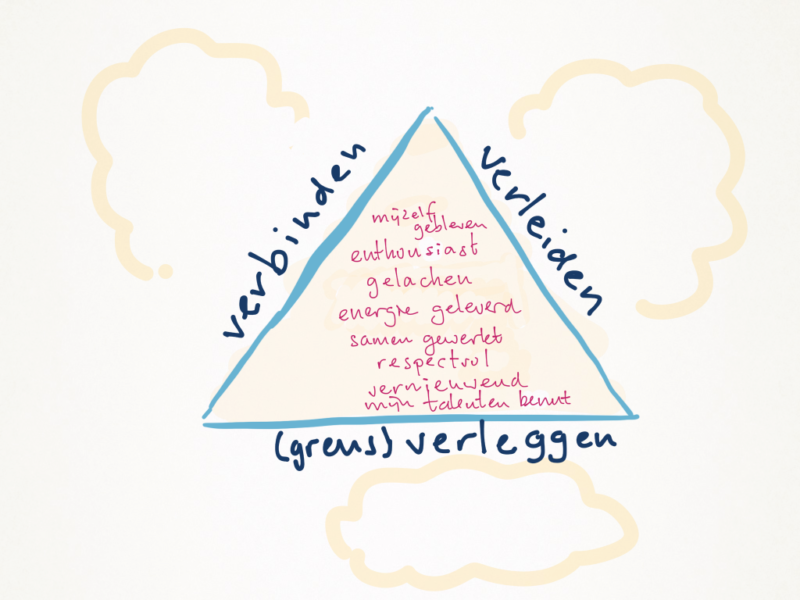 verbinden
verleiden
mijzelf
gebleven
enthousiast
gelachen
energie geleverd
samen gewerkt
respectvol
vernieuwend
mijn talenten benut
(grens) verleggen